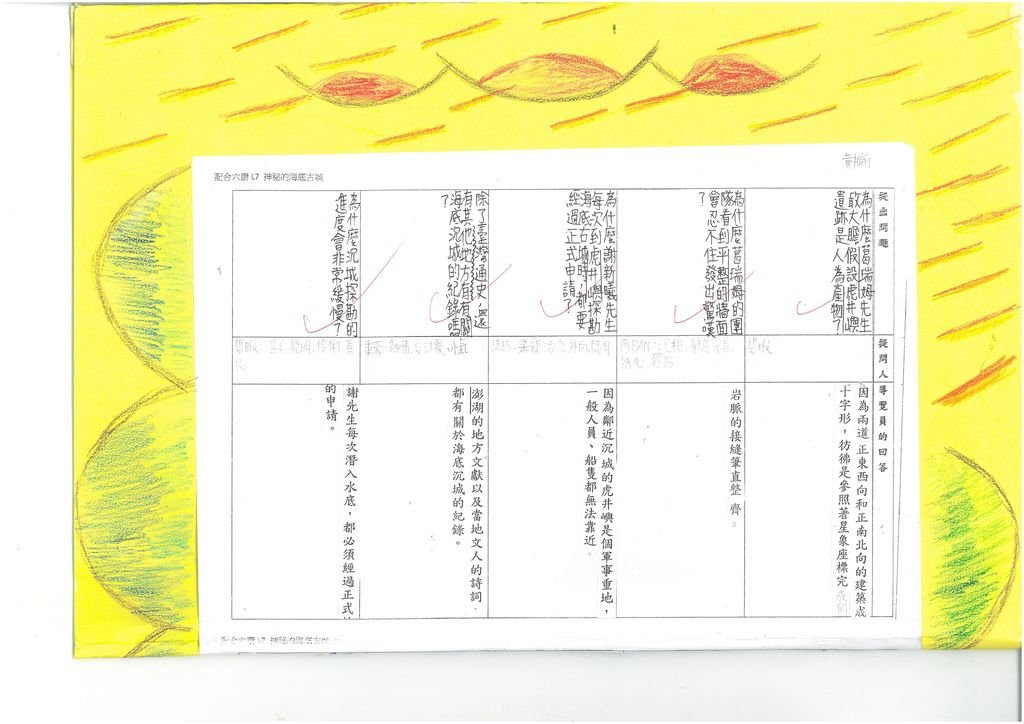 配合六康 L7 神秘的海底古城
提出問題
為什麼葛瑞姆先生
敢大膽假設虎井嶼
遺跡是人為產物?
為什麼葛瑞姆的團
隊看到平整的牆面
會忍不住發出驚嘆
?
為什麼謝新曦先生
每次到虎井嶼探勘
海底古城時,都要
經過正式申請?
除了臺灣通史,還
有其他地方有有關
海底沉城的紀錄嗎
?
為什麼沉城探勘的
進度會非常緩慢?
提問人
導覽員的回答
因為兩道正東西向和正南北向的建築成
十字形,彷彿是參照著星象座標完成的
岩脈的接縫筆直整齊。
因為鄰近沉城的虎井嶼是個軍事重地,
一般人員、船隻都無法靠近。
澎湖的地方文獻以及當地文人的詩詞,
都有關於海底沉城的紀錄。
謝先生每次潛入水底,都必須經過正式
的申請。
配合六康 L7 神秘的海底古城